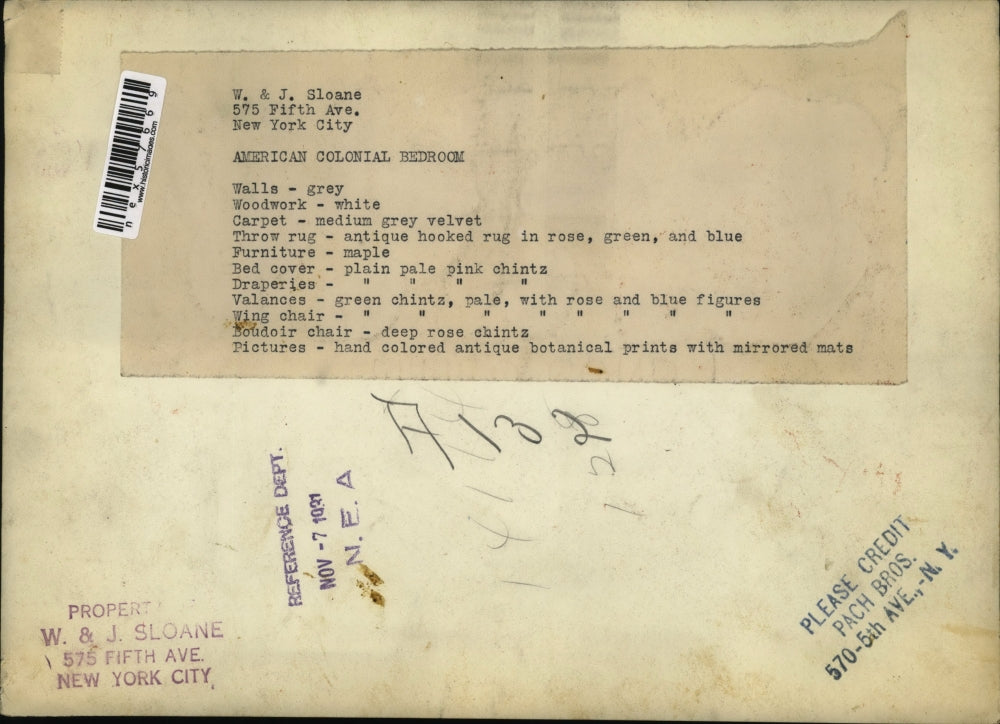 W. & J. Sloane
575 Fifth Ave.
New York City
AMERICAN COLONIAL BEDROOM
Walls - grey
Woodwork - white
Carpet - medium grey velvet
Throw rug - antique hooked rug in rose, green, and blue
Furniture - maple
Bed cover - plain pale pink chintz
Draperies - " " " "
Valances - green chintz, pale, with rose and blue figures
Wing chair - " " " " " " " "
Boudoir chair - deep rose chintz
Pictures - hand colored antique botanical prints with mirrored mats
nex576669
www.historicimages.com
REFERENCE DEPT.
NOV -7 1931
N. E. A
PROPERT
W. & J. SLOANE
575 FIFTH AVE.
NEW YORK CITY
PLEASE CREDIT
PACH BROS.
570-5th AVE.,-N. Y.